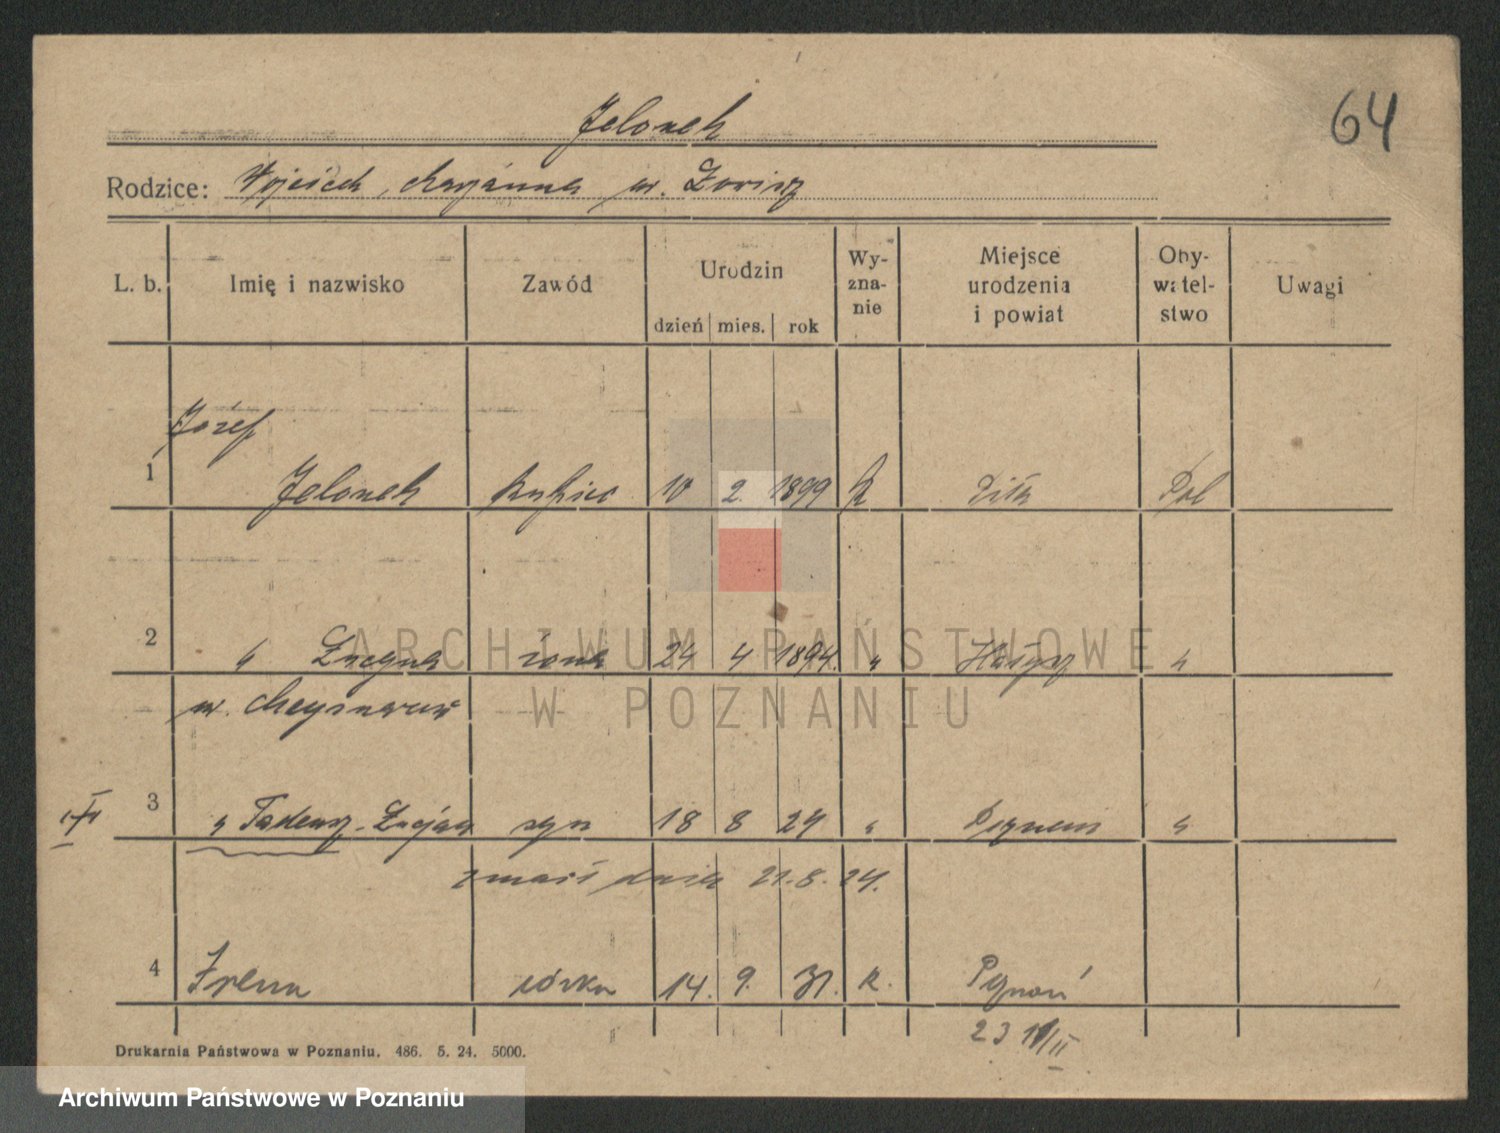 64
Jelonek
Rodzice: Wojciech, Maryanna
L. b. Imię i nazwisko Zawód Urodzin Wy-zna-nie Miejsce urodzenia i powiat Oby-watel-stwo Uwagi
dzień mies. rok
Józef
1 Jelonek kupiec 10 2. 1899 Pol
2 " Lucyna żona 24 4 1894. " "
3 " Tadeusz-Lucjan syn 18 8 24 " "
zmarł dnia 21.8.24.
4 Irena córka 14. 9. 31. k. Poznań
Drukarnia Państwowa w Poznaniu. 486. 5. 24. 5000.
ARCHIWUM PAŃSTWOWE
W POZNANIU
Archiwum Państwowe w Poznaniu